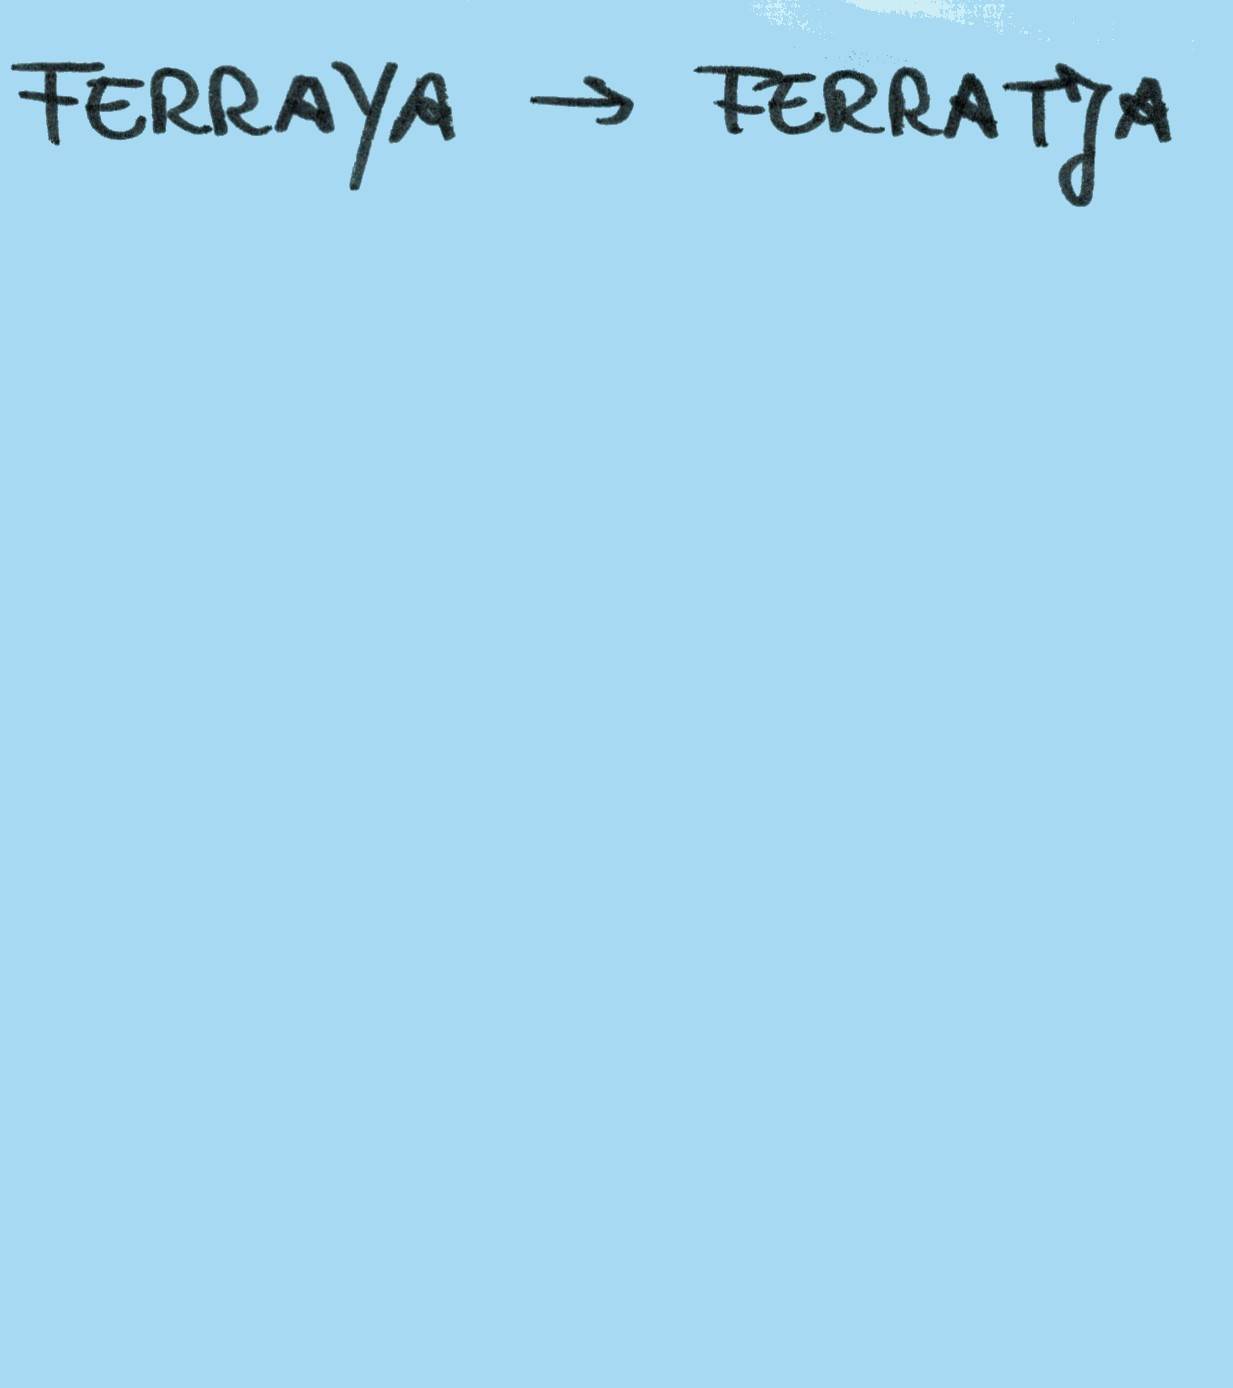 FERRAYA → FERRATJA